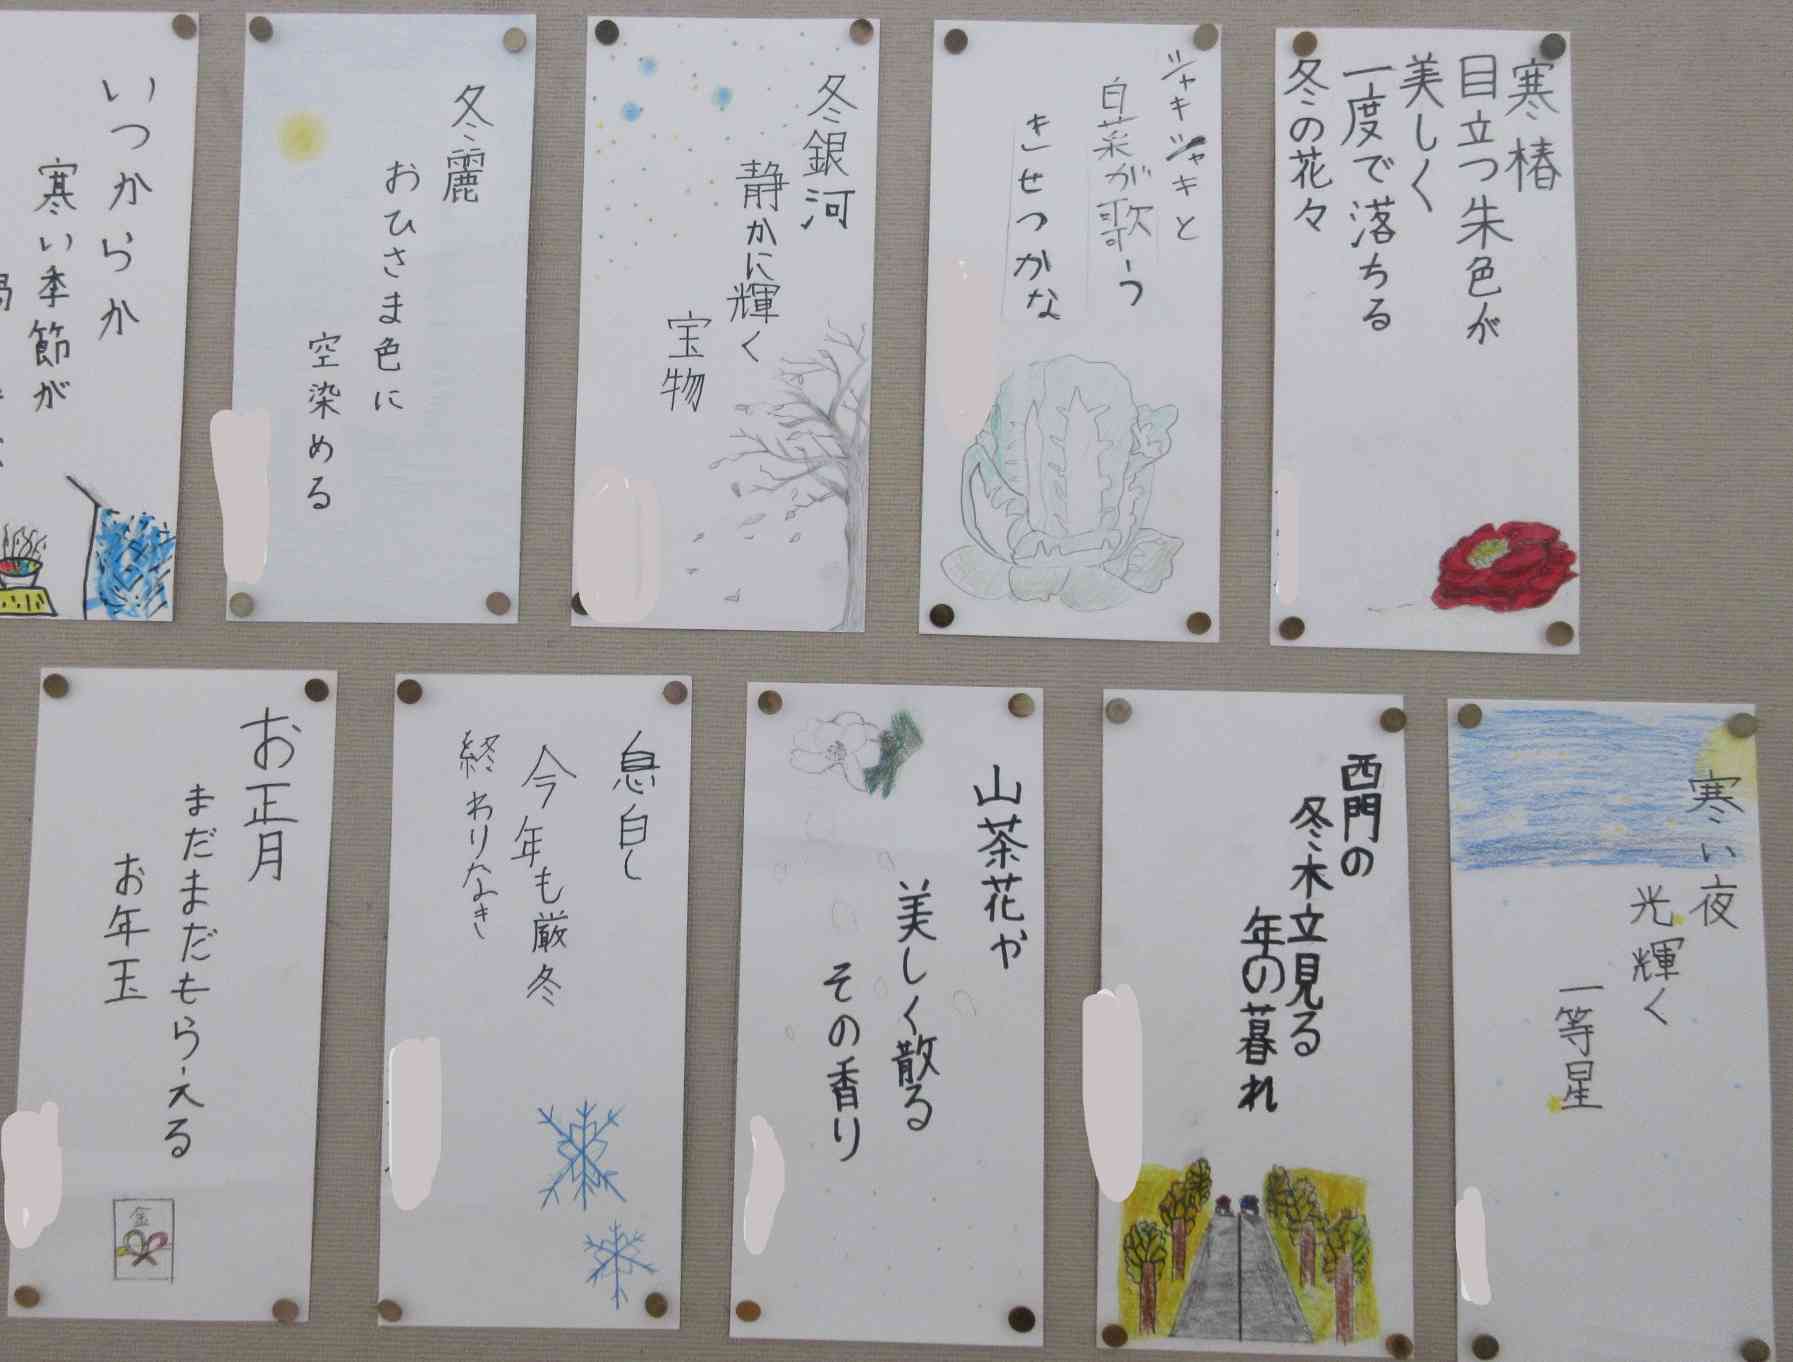 寒椿
目立つ朱色が
美しく
一度で落ちる
冬の花々
シャキシャキと
白菜が歌う
きせつかな
冬銀河
静かに輝く
宝物
冬麗
おひさま色に
空染める
いつからか
寒い季節が
寒い夜
光輝く
一等星
西門の
冬木立見る
年の暮れ
山茶花や
美しく散る
その香り
息白し
今年も厳冬
終わりなき
お正月
まだまだもらえる
お年玉
金